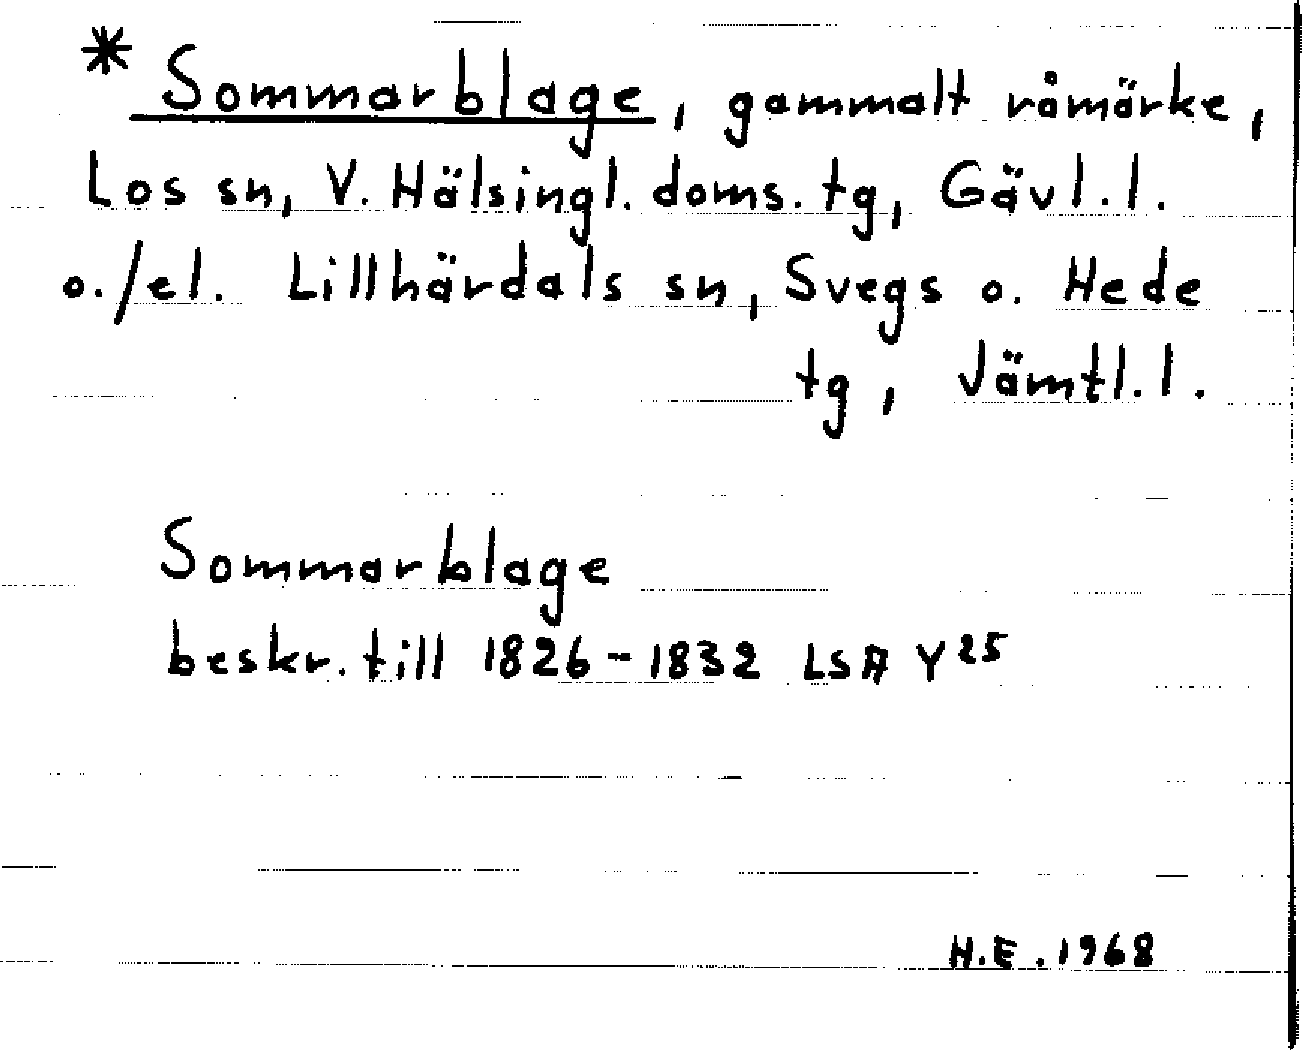 * Sommarblage, gammalt råmärke,
Los sn, V. Hälsingl. doms. tg, Gävl. l.
o./el. Lillhärdals sn, Svegs o. Hede
tg, Jämtl. l.
Sommarblage
beskr. till 1826-1832 LSA Y25
H.E. 1968